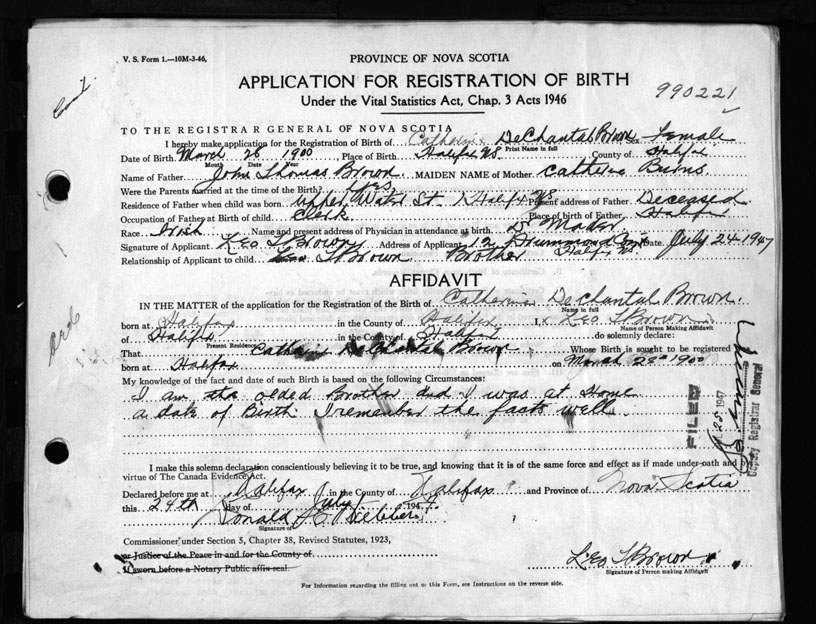 V. S. Form 1.—10M-3-46,
PROVINCE OF NOVA SCOTIA
APPLICATION FOR REGISTRATION OF BIRTH
990221
Under the Vital Statistics Act, Chap. 3 Acts 1946
TO THE REGISTRAR GENERAL OF NOVA SCOTIA
I hereby make application for the Registration of Birth of Catherine DeChantal Brown Sex Female
Print Name in full
Date of Birth March 26 1900 Place of Birth Halifax NS County of Halifax
Month Date Year
Name of Father John Thomas Brown MAIDEN NAME of Mother Catherine Burns
Were the Parents married at the time of Birth? Yes
Residence of Father when child was born Upper Water St. Halifax NS Present address of Father Deceased
Occupation of Father at Birth of child Clerk Place of Birth of Father Halifax
Race Irish Name and present address of Physician in attendance at birth Dr Mader
Signature of Applicant Leo T Brown Address of Applicant 12 Drummond Court Date July 24 1947
Halifax NS.
Relationship of Applicant to child Leo T Brown Brother
AFFIDAVIT
IN THE MATTER of the application for the Registration of the Birth of Catherine DeChantal Brown
Name in full
born at Halifax in the County of Halifax I, Leo T Brown
Name of Person Making Affidavit
of Halifax in the County of Halifax do solemnly declare:
Present Residence
That Catherine DeChantal Brown Whose Birth is sought to be registered
born at Halifax on March 26 1900
My knowledge of the fact and date of such Birth is based on the following Circumstances:
I am the olded Brother and I was at Home
a date of Birth I remember the facts well
FILED
25 1947
Deputy Registrar General
I make this solemn declaration conscientiously believing it to be true, and knowing that it is of the same force and effect as if made under oath and by
virtue of The Canada Evidence Act.
Declared before me at Halifax in the County of Halifax and Province of Nova Scotia
this 24th day of July 1947.
Signature of
Commissioner under Section 5, Chapter 38, Revised Statutes, 1923,
or Justice of the Peace in and for the County of
If sworn before a Notary Public affix seal.
Leo T Brown
Signature of Person making Affidavit
For Information regarding the filling out of this Form, see Instructions on the reverse side.